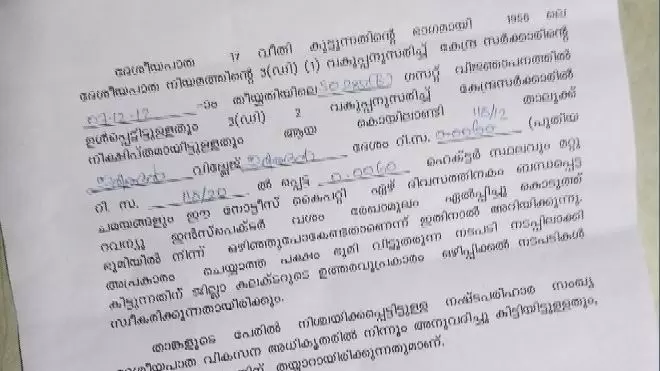 ദേശീയപാത 17 വീതി കൂട്ടുന്നതിന്റെ ഭാഗമായി 1956 ലെ
ദേശീയപാത നിയമത്തിന്റെ 3(ഡി) (1) വകുപ്പനുസരിച്ച് കേന്ദ്ര സർക്കാരിന്റെ
07-12-12 -ാം തീയ്യതിയിലെ ഗസറ്റ് വിജ്ഞാപനത്തിൽ
ഉൾപ്പെട്ടിട്ടുള്ളതും 3(ഡി) 2 വകുപ്പനുസരിച്ച് കേന്ദ്രസർക്കാരിൽ
നിക്ഷിപ്തമായിട്ടുള്ളതും ആയ കൊയിലാണ്ടി താലൂക്ക്
വില്ലേജ് ദേശം റി.സ. 48/12 (പുതിയ
റി. സ. 48/20 ൽ പെട്ട 0.0060 ഹെക്ടർ സ്ഥലവും മറ്റു
ചമയങ്ങളും ഈ നോട്ടീസ് കൈപറ്റി ഏഴ് ദിവസത്തിനകം ബന്ധപ്പെട്ട
റവന്യൂ ഇൻസ്പെക്ടർ വശം രേഖാമൂലം ഏൽപ്പിച്ചു കൊടുത്ത്
ഭൂമിയിൽ നിന്ന് ഒഴിഞ്ഞുപോകേണ്ടതാണെന്ന് ഇതിനാൽ അറിയിക്കുന്നു.
അപ്രകാരം ചെയ്യാത്ത പക്ഷം ഭൂമി വിട്ടുതരുന്ന നടപടി നടപ്പിലാക്കി
കിട്ടുന്നതിന് ജില്ലാ കലക്ടറുടെ ഉത്തരവുപ്രകാരം ഒഴിപ്പിക്കൽ നടപടികൾ
സ്വീകരിക്കുന്നതായിരിക്കും.
താങ്കളുടെ പേരിൽ നിശ്ചയിക്കപ്പെട്ടിട്ടുള്ള നഷ്ടപരിഹാര സംഖ്യ
ദേശീയപാത വികസന അധികൃതരിൽ നിന്നും അനുവദിച്ചു കിട്ടിയിട്ടുള്ളതും,
തയ്യാറായിരിക്കുന്നതുമാണ്.